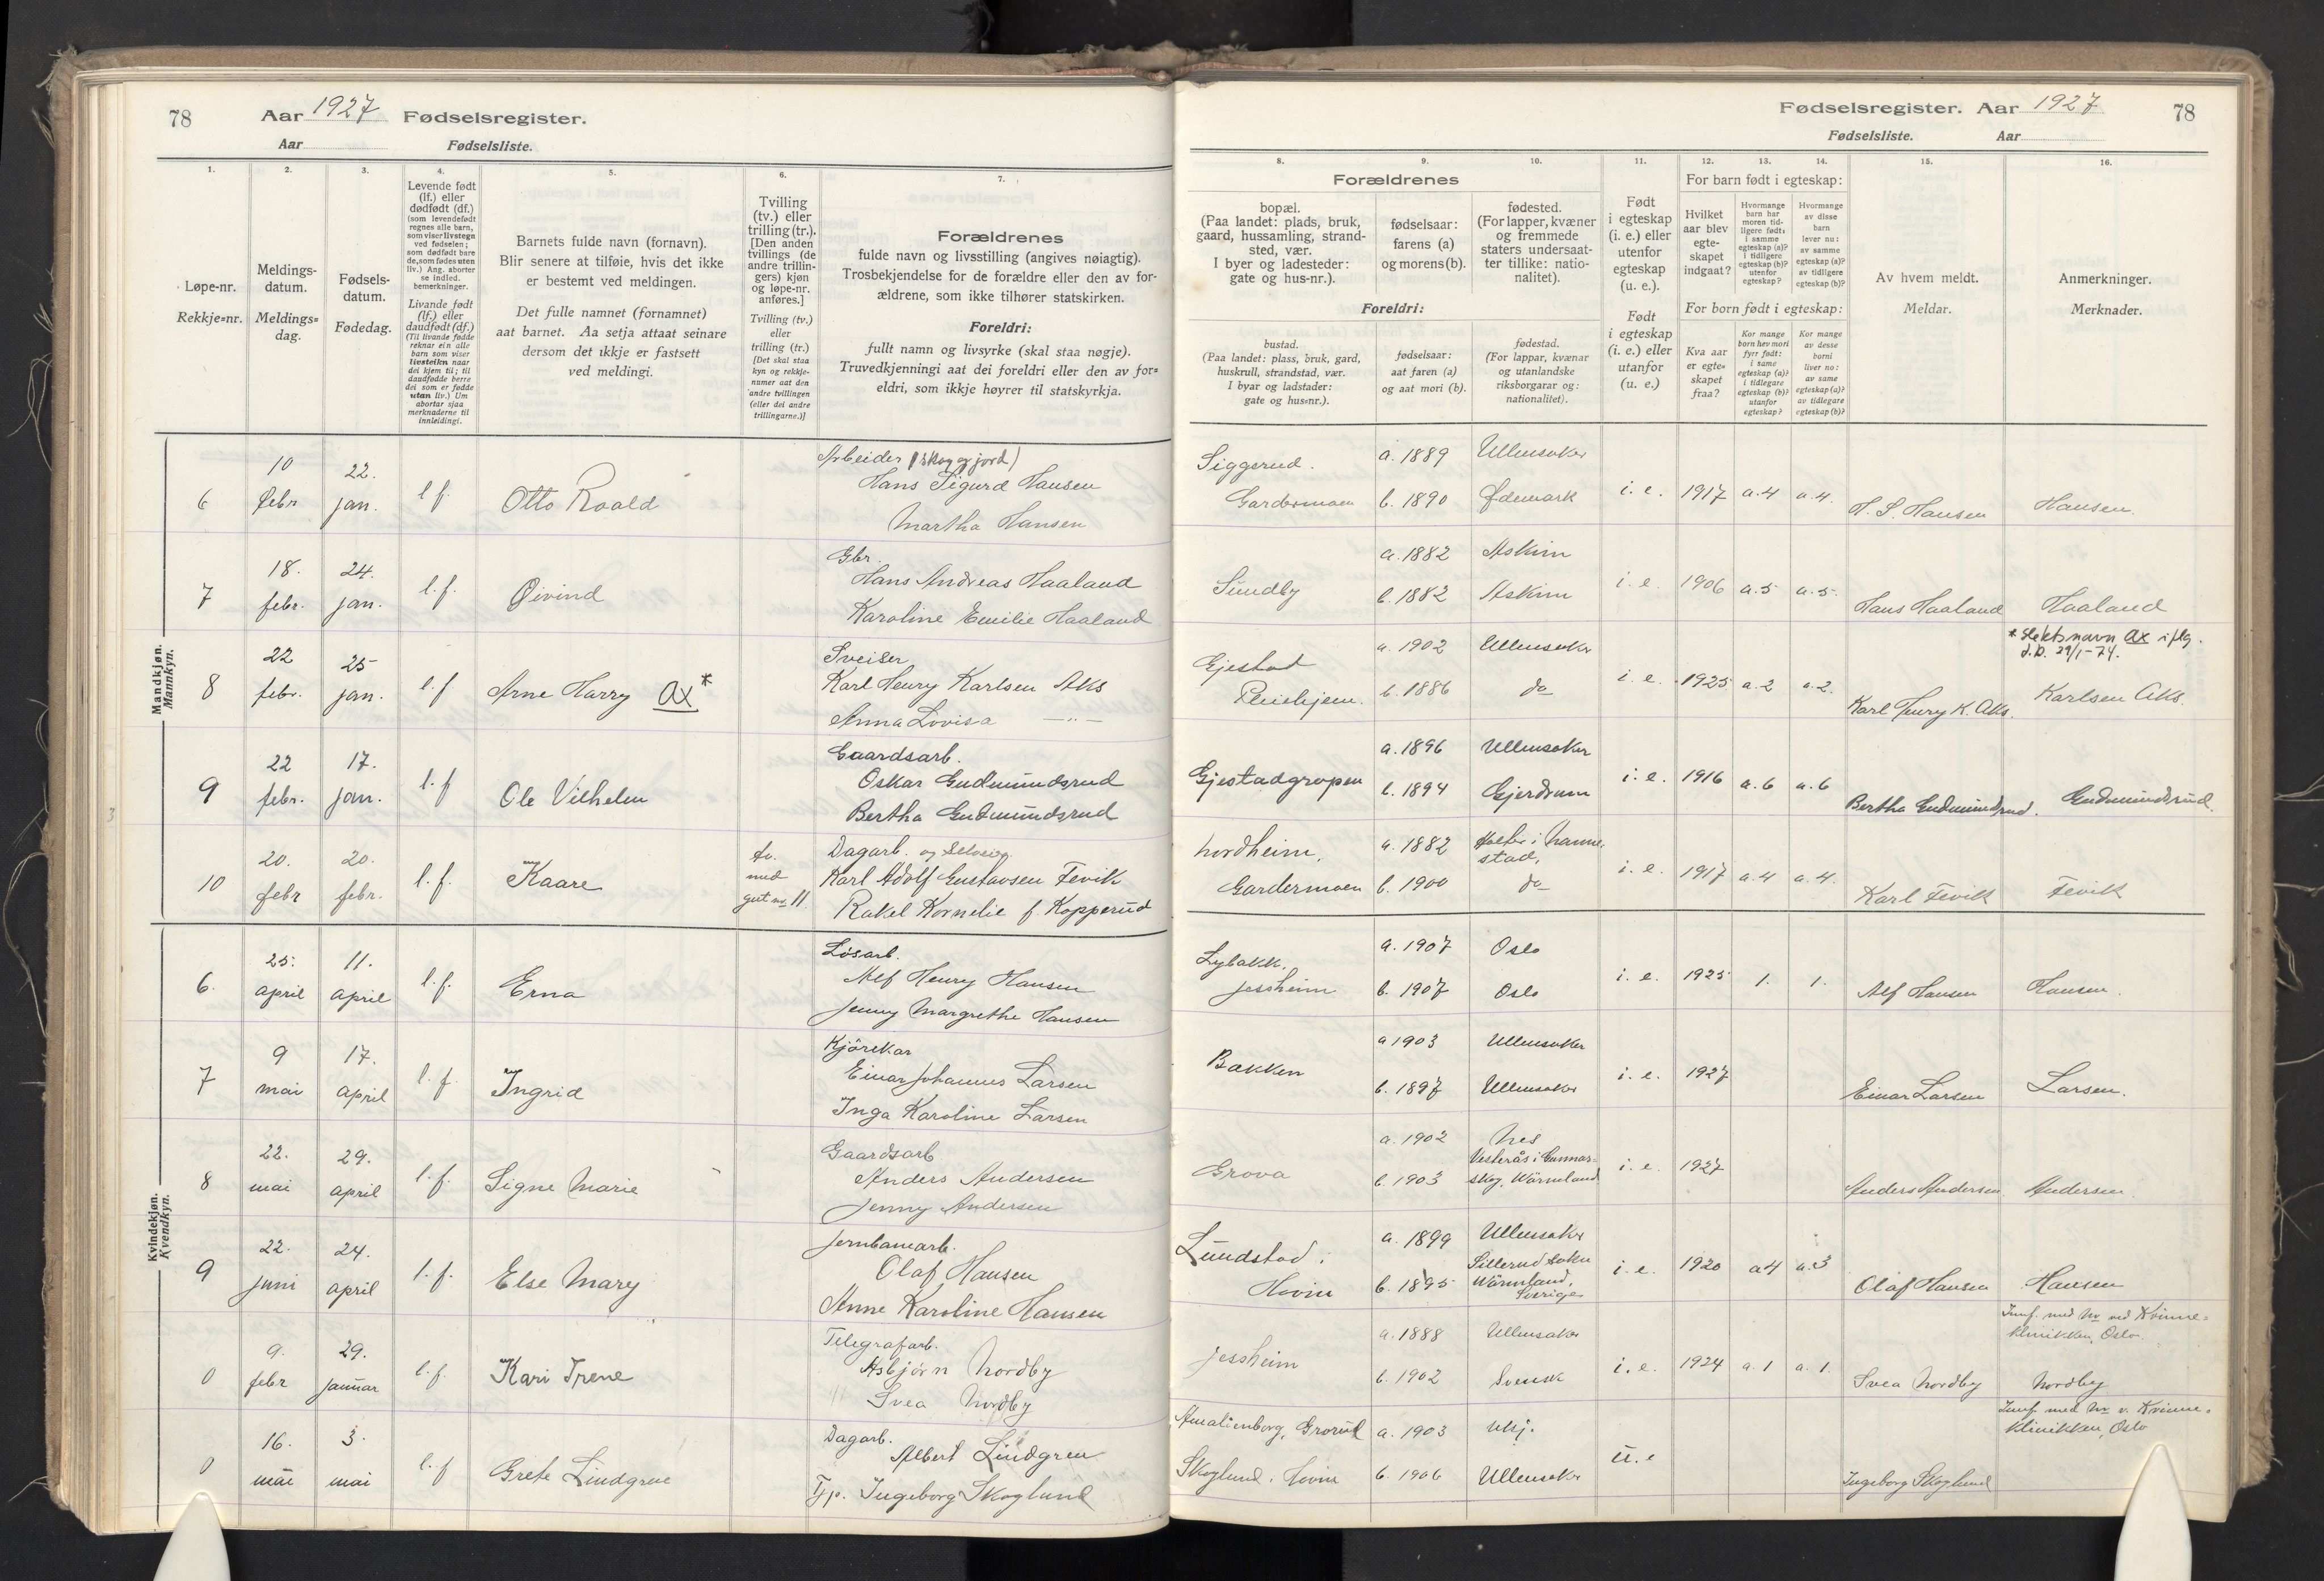 78 Aar 1927 Fødselsregister.
Aar Fødselsliste.
1. 2. 3. 4. 5. 6. 7.
Løpe-nr.
Rekkje=nr.
Meldings-
datum.
Meldings=
dag.
Fødsels-
datum.
Fødedag.
Levende født
(lf.) eller
dødfødt (df.)
(som levendefødt
regnes alle barn,
som viser livstegn
ved fødselen;
som dødfødt bare
de, som fødes uten
liv.) Ang. aborter
se indled.
bemerkninger.
Livande født
(lf.) eller
daudfødt (df.)
(Til livande fødde
reknar ein alle
barn som viser
livsteikn naar
dei kjem til; til
daudfødde berre
dei som er fødde
utan liv.) Um
abortar sjaa
merknaderne til
innleidingi.
Barnets fulde navn (fornavn).
Blir senere at tilføie, hvis det ikke
er bestemt ved meldingen.
Det fulle namnet (fornamnet)
aat barnet. Aa setja attaat seinare
dersom det ikkje er fastsett
ved meldingi.
Tvilling
(tv.) eller
trilling (tr.).
[Den anden
tvillings (de
andre trillin-
gers) kjøn
og løpe-nr.
anføres.]
Tvilling (tv.)
eller
trilling (tr.)
[Det skal staa
kyn og rekkje-
numer aat den
andre tvillingen
(eller dei andre
trillingarne.)]
Forældrenes
fulde navn og livsstilling (angives nøiagtig).
Trosbekjendelse for de forældre eller den av for-
ældrene, som ikke tilhører statskirken.
Foreldri:
fullt namn og livsyrke (skal staa nøgje).
Truvedkjenningi aat dei foreldri eller den av for=
eldri, som ikkje høyrer til statskyrkja.
Mandkjøn.
Mannkyn.
6
10
febr
22.
jan.
l f.
Otto Roald
Arbeider (skog og jord)
Hans Sigurd Hansen
Martha Hansen
7
18.
febr.
24.
jan.
l. f.
Øivind
Gbr.
Hans Andreas Haaland
Karoline Emilie Haaland
8
22
febr.
25
jan.
l. f
Arne Harry Ax *
Sveiser
Karl Henry Karlsen Aks
Anna Lovisa —„—
9
22
febr.
17.
jan.
l. f
Ole Vilhelm
Gaardsarb.
Oskar Gudmundsrud
Bertha Gudmundsrud
10
20.
febr
20.
febr.
l. f.
Kaare
tv.
med
gut nr 11
Dagarb. og
Karl Adolf Gustavsen Fevik
Rakel Kornelie f. Kopperud
Kvindekjøn.
Kvendkyn.
6.
25.
april
11.
april
l. f.
Erna
Løsarb.
Alf Henry Hansen
Jenny Margrethe Hansen
7
9
mai
17.
april
l. f.
Ingrid
Kjørekar
Einar Johannes Larsen
Inga Karoline Larsen
8
22.
mai
29.
april
l. f.
Signe Marie
Gaardsarb
Anders Andersen
Jenny Andersen
9
22.
juni
24.
april
l. f.
Else Mary
Jernbanearb.
Olaf Hansen
Anne Karoline Hansen
0
9.
febr
29.
januar
l. f.
Kari Irene
Telegrafarb.
Asbjørn Nordby
Svea Nordby
0
16.
mai
3.
mai
l. f
Grete Lindgren
Dagarb.
Albert Lindgren
Tjp. Ingeborg Skoglund
Fødselsregister. Aar 1927 78
Fødselsliste. Aar
8. 9. 10. 11. 12. 13. 14. 15. 16.
Forældrenes
bopæl.
(Paa landet: plads, bruk,
gaard, hussamling, strand-
sted, vær.
I byer og ladesteder:
gate og hus-nr.).
fødselsaar:
farens (a)
og morens (b).
fødested.
(For lapper, kvæner
og fremmede
staters undersaat-
ter tillike: natio-
nalitet).
Foreldri:
bustad.
(Paa landet: plass, bruk, gard,
huskrull, strandstad, vær.
I byar og ladstader:
gate og hus=nr.).
fødselsaar:
aat faren (a)
og aat mori (b).
fødestad.
(For lappar, kvænar
og utanlandske
riksborgarar og:
nationalitet).
Født
i egteskap
(i. e.) eller
utenfor
egteskap
(u. e.).
Født
i egteskap
(i. e.) eller
utanfor
(u. e.)
For barn født i egteskap:
Hvilket
aar blev
egte-
skapet
indgaat?
Hvormange
barn har
moren tid-
ligere født:
i samme
egteskap (a)?
i tidligere
egteskap (b)?
utenfor
egteskap?
Hvormange
av disse
barn
lever nu:
av samme
egteskap (a)?
av tidligere
egteskap (b)?
For born født i egteskap:
Kva aar
er egte=
skapet
fraa?
Kor mange
born hev mori
fyrr født:
i same
egteskap (a)?
i tidlegare
egteskap (b)?
utanfor
egteskap?
Kor mange
av desse
borni
liver no:
av same
egteskap (a)?
av tidlegare
egteskap (b)?
Av hvem meldt.
Meldar.
Anmerkninger.
Merknader.
Siggerud.
Gardermoen
a. 1889
b. 1890
Ullensaker
Ødemark
i. e. 1917 a. 4 a. 4.
H. S. Hansen
Hansen.
Sundby
a. 1882
b. 1882
Askim
Askim
i. e. 1906 a. 5 a. 5.
Hans Haaland
Haaland
* Slektsnavn Ax iflg.
J.D. 29/1-74.
Gjestad
Pleiehjem.
a. 1902
b. 1886
Ullensaker
do
i. e. 1925 a. 2 a. 2.
Karl Henry K. Aks.
Karlsen Aks.
Gjestadgropen
a. 1896
b. 1894
Ullensaker
Gjerdrum
i. e. 1916 a. 6 a. 6
Bertha Gudmundsrud.
Gudmundsrud.
Nordheim,
Gardermoen
a. 1882
b. 1900
do
i. e. 1917 a. 4 a. 4.
Karl Fevik
Fevik
Lybakk.
Jessheim
a. 1907
b. 1907
Oslo
Oslo
i. e. 1925 1. 1.
Alf Hansen
Hansen.
Bakken
a 1903
b. 1897
Ullensaker
Ullensaker
i. e. 1927
Einar Larsen
Larsen.
Grova
a. 1902
b. 1903
Nes
Vesterås i Gunnar=
skog, Wärmland
i. e. 1927
Anders Andersen
Andersen
Lundstad.
Hovin
a. 1899
b. 1895
Ullensaker
Sillerud sokn
Wärmland,
Sverige
i. e. 1920 a 4 a. 3
Olaf Hansen
Hansen
Jmf. med Nr ved Kvinne=
klinikken, Oslo.
Jessheim
a. 1888
b. 1902
Ullensaker
Svensk
i. e. 1924 a. 1 a. 1.
Svea Nordby
Nordby
Jmf. med Nr v. Kvinne=
klinikken, Oslo
Amalienborg, Grorud
Skoglund, Hovin
a. 1903
b. 1906
Ukj.
Ullensaker
u. e
Ingeborg Skoglund